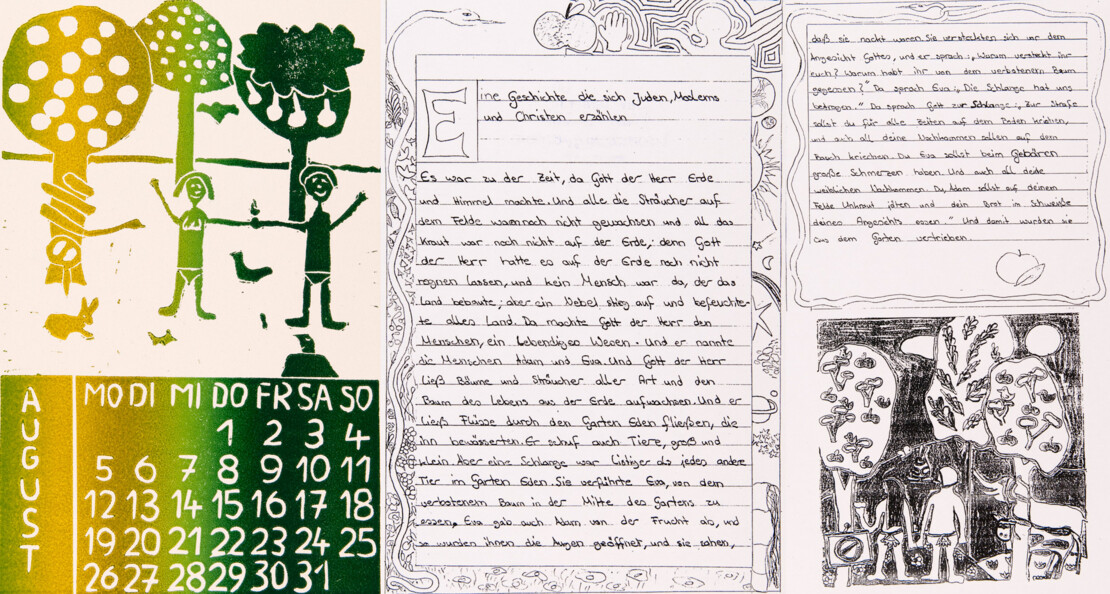 A
U
G
U
S
T
MO DI MI DO FR SA SO
1 2 3 4
5 6 7 8 9 10 11
12 13 14 15 16 17 18
19 20 21 22 23 24 25
26 27 28 29 30 31
Eine Geschichte die sich Juden, Moslems
und Christen erzählen
Es war zu der Zeit, da Gott der Herr Erde
und Himmel machte. Und alle die Sträucher auf
dem Felde waren noch nicht gewachsen und all das
Kraut war noch nicht auf der Erde; denn Gott
der Herr hatte es auf der Erde noch nicht
regnen lassen, und kein Mensch war da, der das
Land bebaute; aber ein Nebel stieg auf und befeuchte-
te alles Land. Da machte Gott der Herr den
Menschen, ein lebendiges Wesen. Und er nannte
die Menschen Adam und Eva. Und Gott der Herr
ließ Bäume und Sträucher aller Art und den
Baum des Lebens aus der Erde aufwachsen. Und er
ließ Flüsse durch den Garten Eden fließen, die
ihn bewässerten. Er schuf auch Tiere, groß und
klein. Aber eine Schlange war listiger als jedes andere
Tier im Garten Eden. Sie verführte Eva, von dem
verbotenem Baum in der Mitte des Gartens zu
essen. Eva gab auch Adam von der Frucht ab, und
so wurden ihnen die Augen geöffnet, und sie sahen,
daß sie nackt waren. Sie versteckten sich vor dem
Angesicht Gottes, und er sprach: „Warum versteckt ihr
euch? Warum habt ihr von dem verbotenem Baum
gegessen?" Da sprach Eva: „Die Schlange hat uns
betrogen." Da sprach Gott zur Schlange: „Zur Strafe
sollst du für alle Zeiten auf dem Boden kriechen,
und auch all deine Nachkommen sollen auf dem
Bauch kriechen. Du Eva sollst beim Gebären
große Schmerzen haben. Und auch all deine
weiblichen Nachkommen. Du, Adam sollst auf deinem
Felde Unkraut jäten und dein Brot im Schweiße
deines Angesichts essen." Und damit wurden sie
aus dem Garten vertrieben.